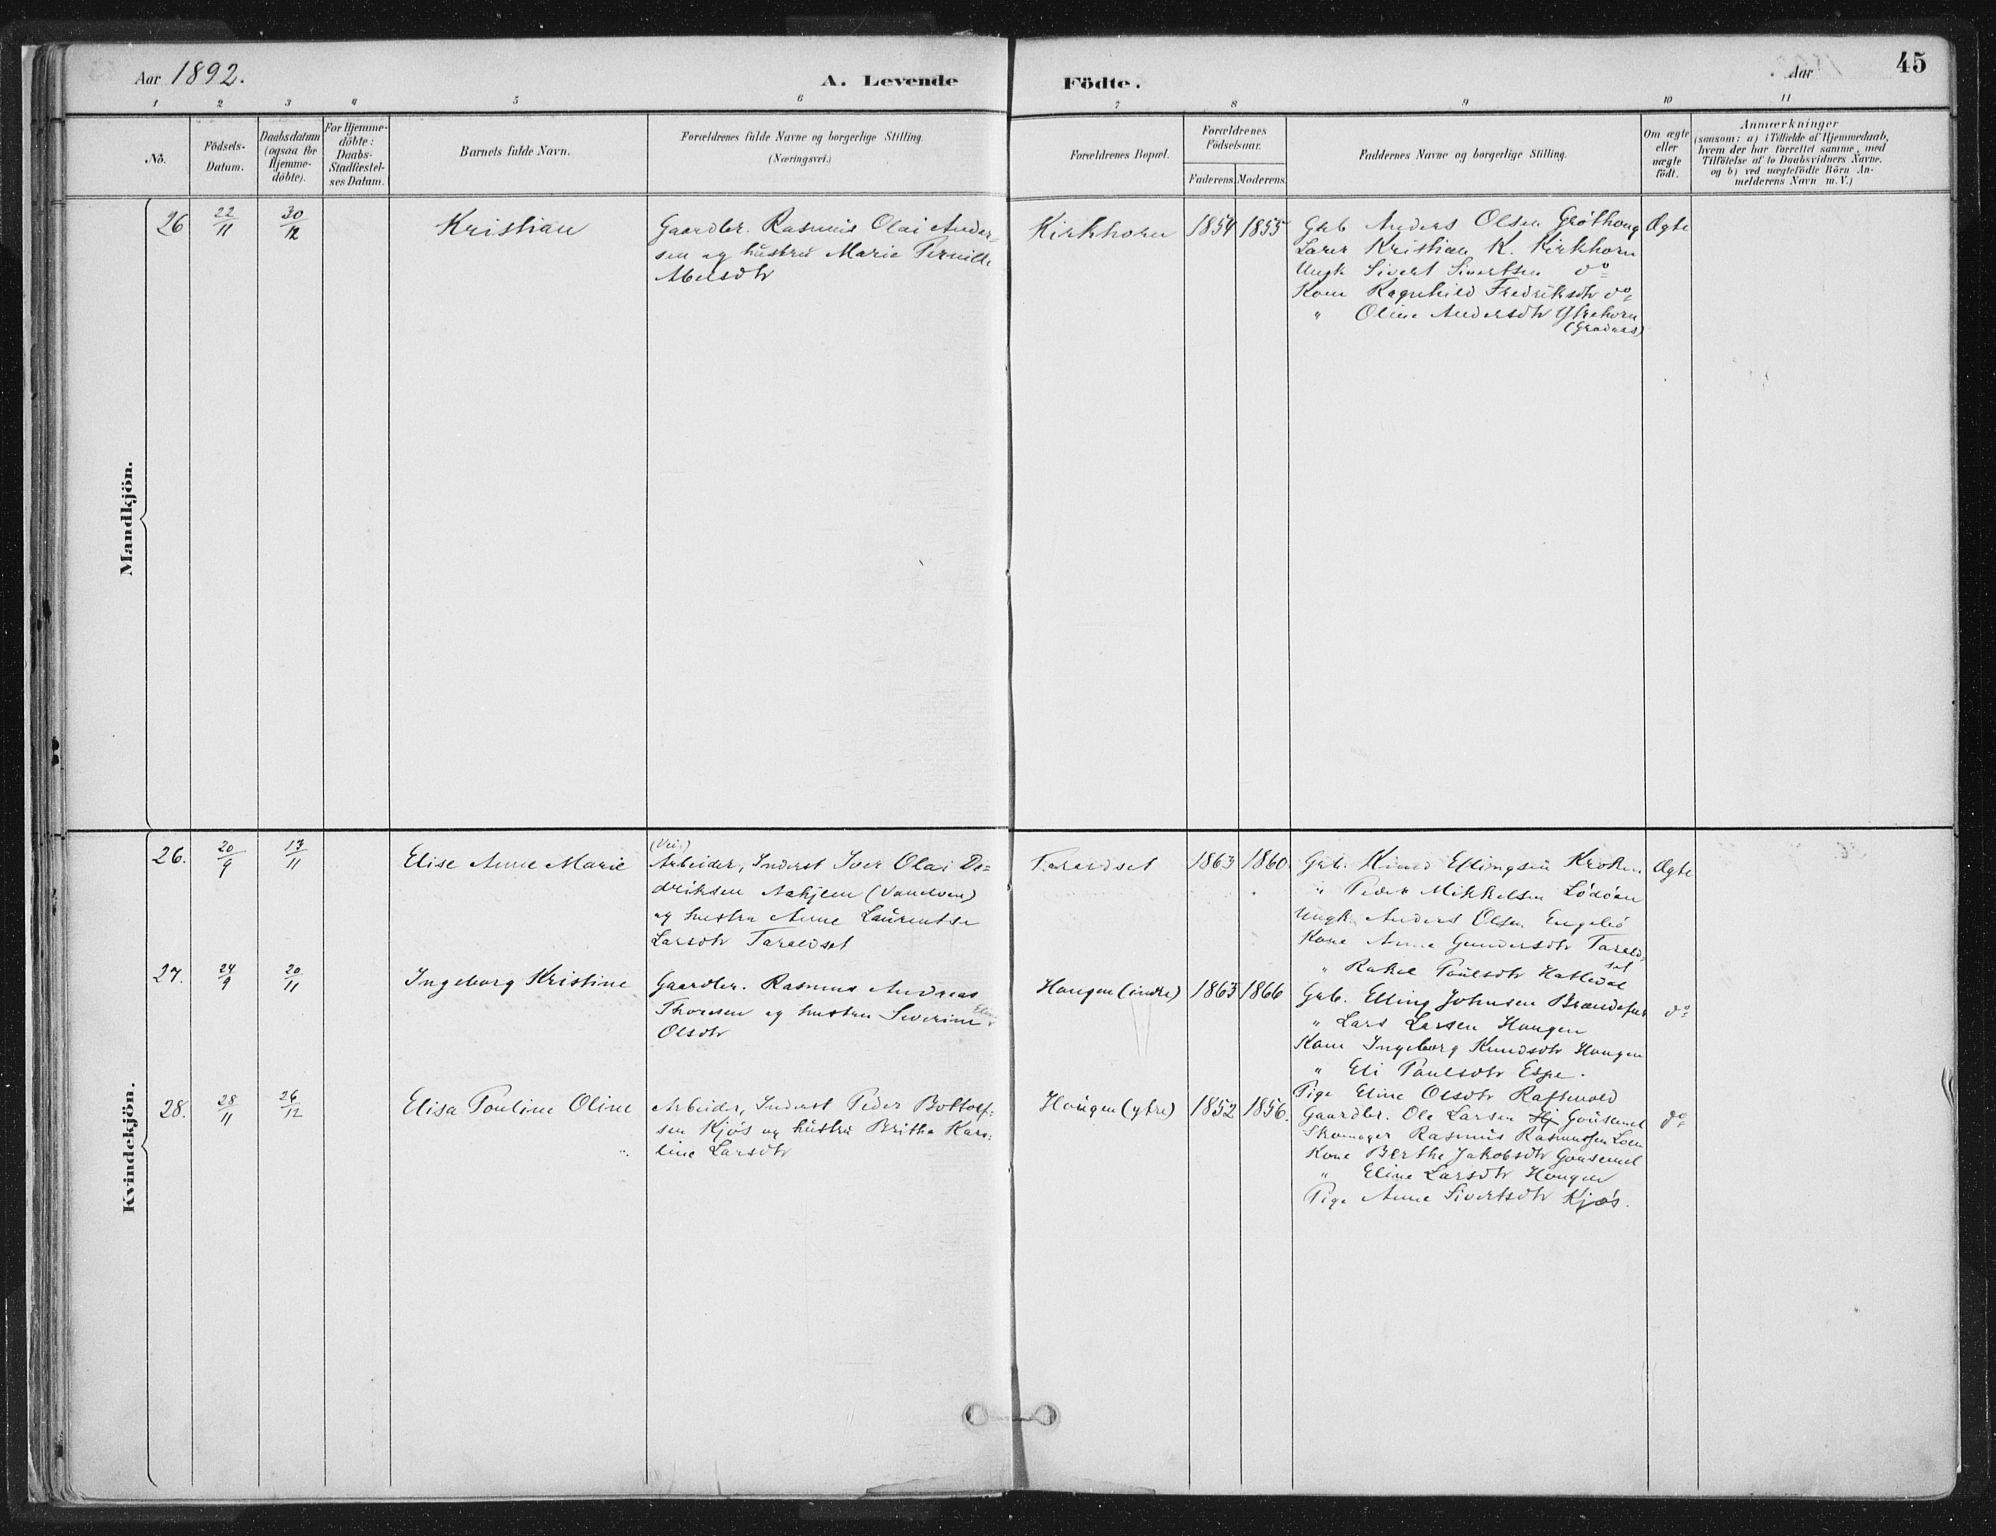 Aar 1892.
A. Levende
Födte.
Aar
45
1 2 3 4 5 6 7 8 9 10 11
No.
Födsels-
Datum.
Daabsdatum
(ogsaa for
Hjemme-
döbte).
For Hjemme-
döbte:
Daabs-
Stadfæstel-
ses Datum.
Barnets fulde Navn.
Forældrenes fulde Navne og borgerlige Stilling.
(Næringsvei.)
Forældrenes Bopæl.
Forældrenes
Födselsaar.
Faderens. Moderens.
Faddernes Navne og borgerlige Stilling.
Om ægte
eller
uægte
födt.
Anmærkninger
(saasom: a) i Tilfælde af Hjemmedaab,
hvem der har forrettet samme, med
Tilföielse af to Daabsvidners Navne.
og b) ved uægtefödte Börn An-
melderens Navn m. V.)
Mandkjön.
26
22/11
30/12
Kristian
Gaardbr. Rasmus Olai Ander-
sen og hustru Marie Pernille
Abelsdtr
Kirkhorn
1854
1855
Gkb Anders Olsen Grøthoug
Lærer Kristian K. Kirkhorn
Ungk Sivert Sivertsen do
Kone Ragnhild Fredriksdtr do
" Oline Andersdtr Ytrehorn
Ægte
Kvindekjön.
26.
20/9
13/11
Elise Anne Marie
(Vei)
Arbeider, Inderst Iver Olai Di=
driksen Aahjem (Vandven)
og hustru Anne Laurentse
Larsdtr Taraldset
Taraldset
1863
1860
Gkb. Knud Ellingsen Kroken
" Peder Mikkelsen Lödöen
Ungk Anders Olsen Engelsö
Kone Anne Gundersdtr Tarald-
set
" Rakel Paulsdtr Hatledal
Ægte
27.
24/9
20/11
Ingeborg Kristine
Gaardbr. Rasmus Andreas
Thoresen og hustru Severine Eline
Olsdtr
Hougen (indre)
1863
1866
Gkb. Elling Johnsen
" Lars Larsen Hougen
Kone Ingeborg Knudsdtr Hougen
" Eli Paulsdtr Espe.
Pige Eline Olsdtr Raftevold
do
28.
28/11
26/12
Elisa Pouline Oline
Arbeider, Inderst Peder Bottolf-
sen Kjös og hustru Brithe Karo-
line Larsdtr
Hougen (ytre)
1852
1856.
Gaardbr. Ole Larsen Hj Gousemel
Skomager Rasmus Rasmussen Loen
Kone Berthe Jakobsdtr Gousemel
" Eline Larsdtr Hougen
Pige Anne Sivertsdtr Kjøs.
do